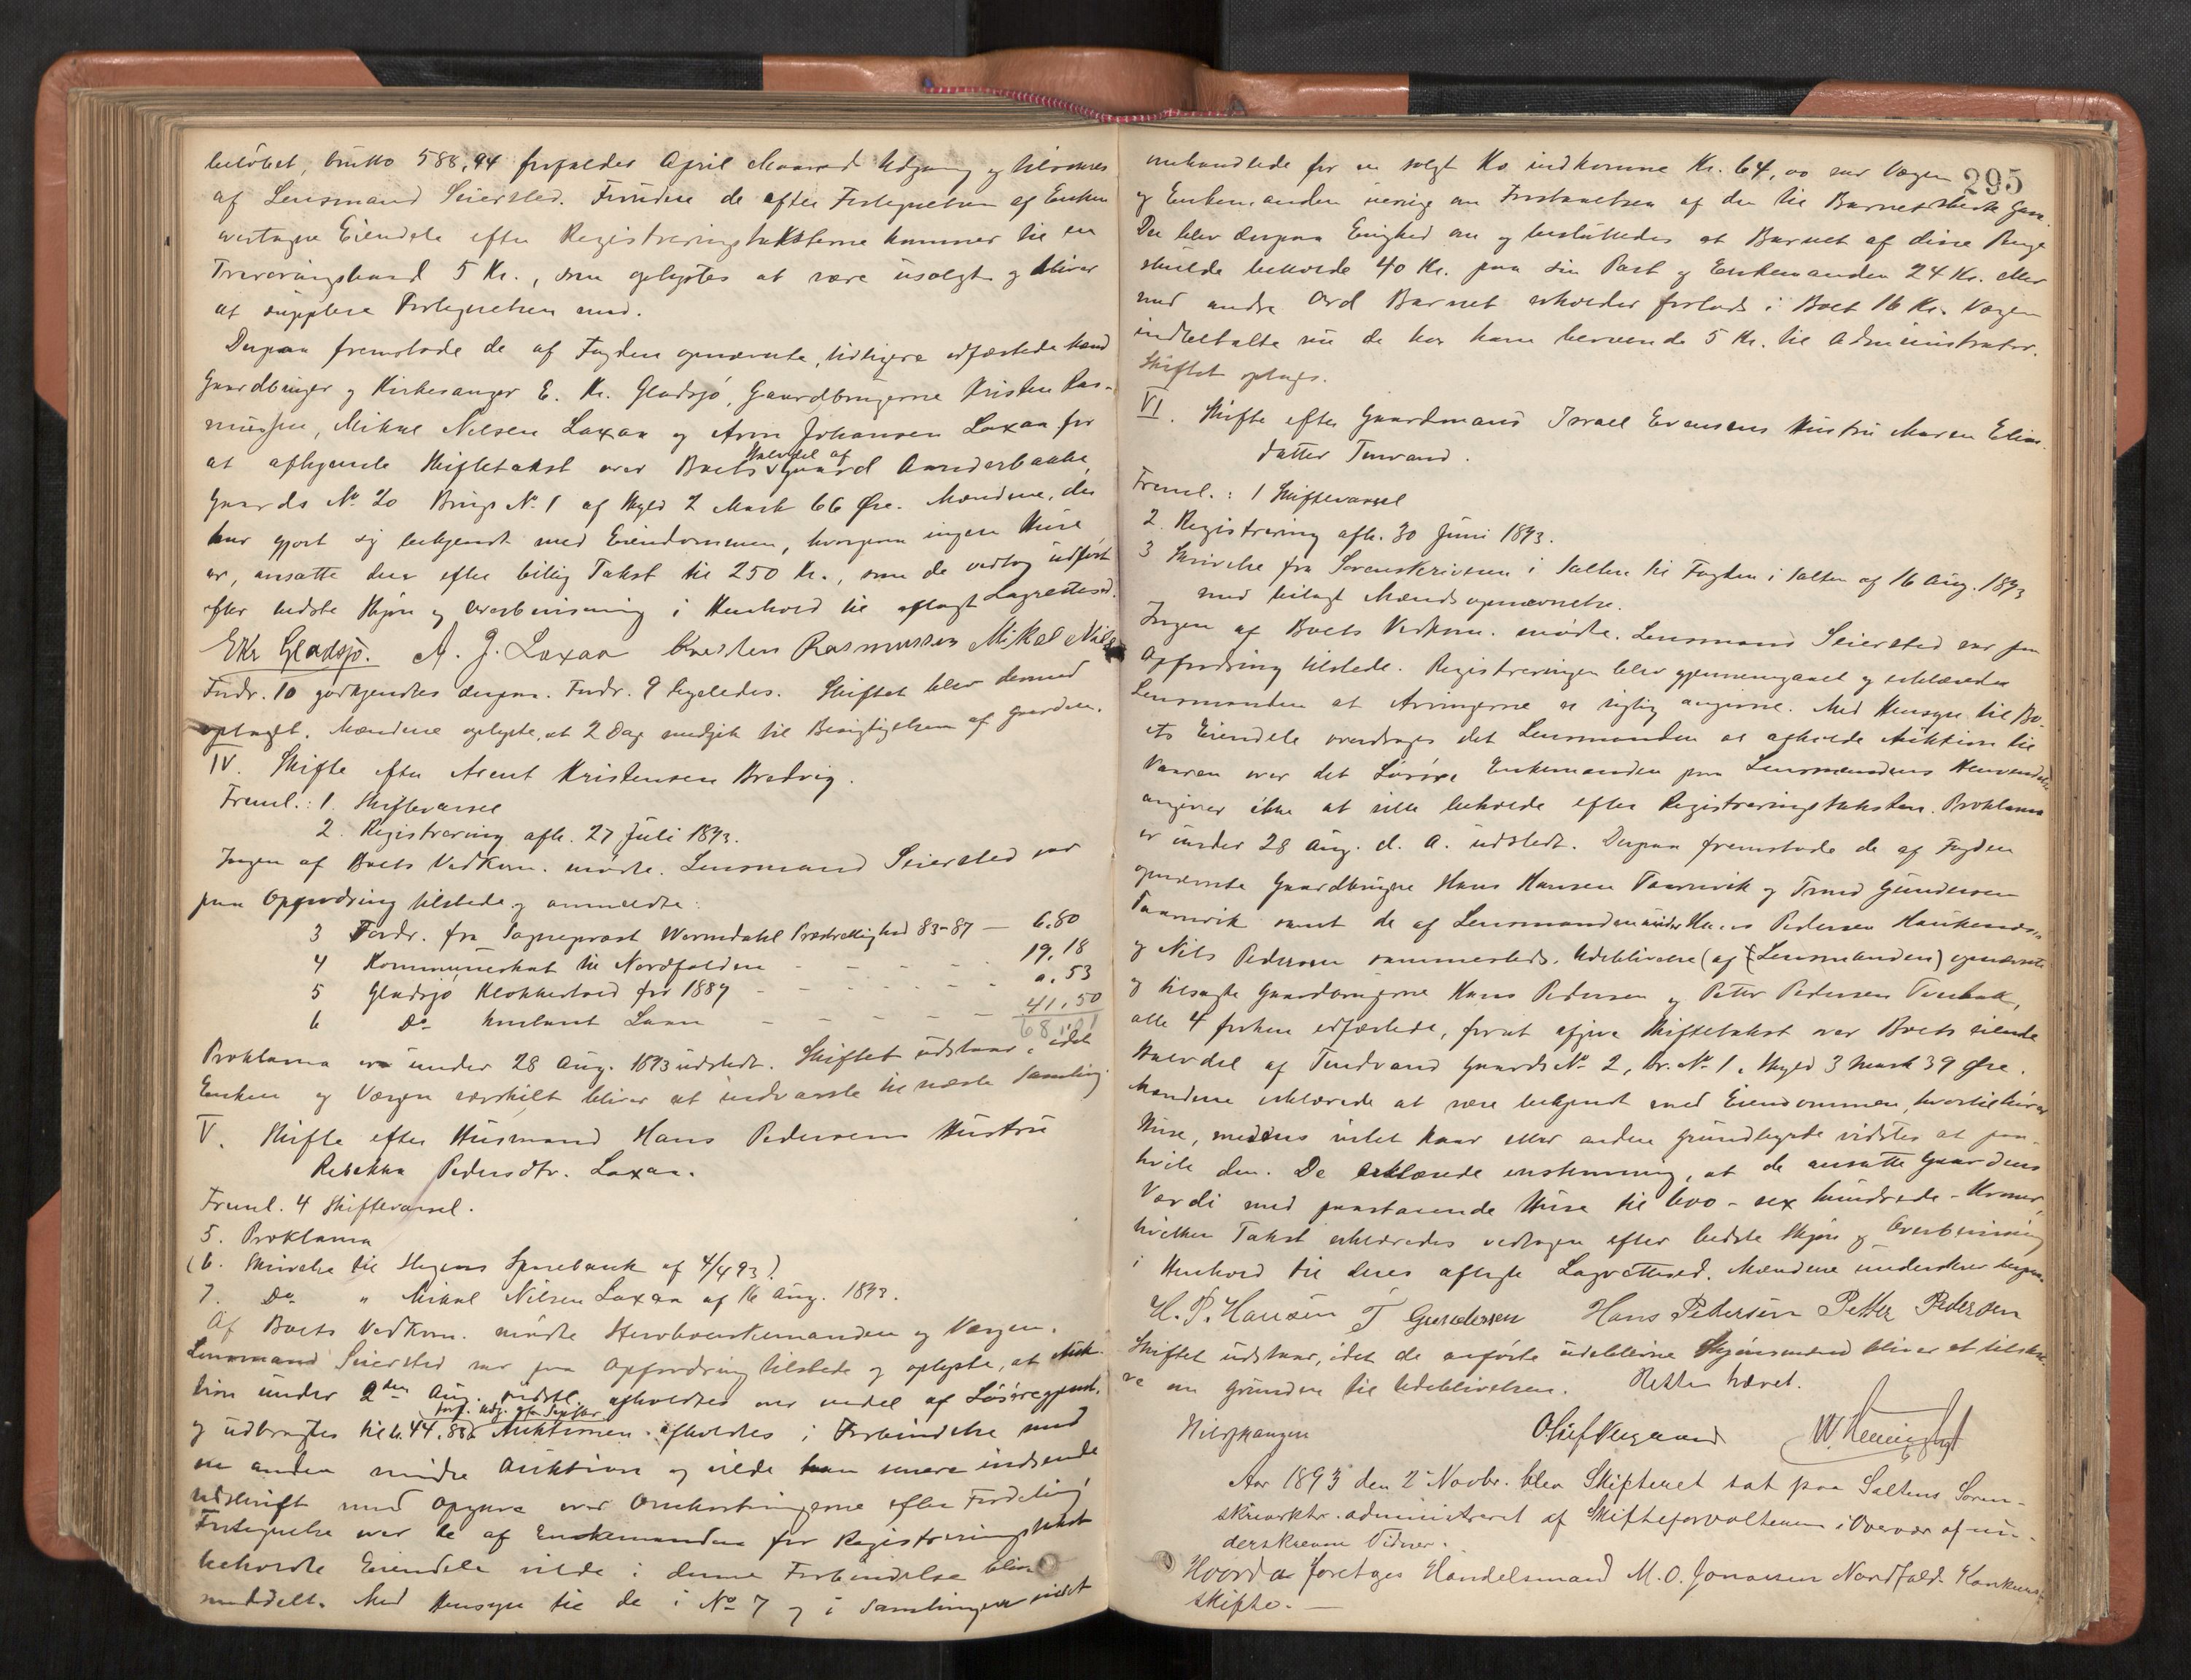 beløbet, brutto 588,94 forfalder April Maaned Udgang og tilsvares
af Lensmand Seiersted. Foruden de efter Fortegnelsen af Enken
overtagne Eiendele efter Registreringstaksterne kommer til en
5 Kr., som oplystes at være usolgt og bliver
at supplere Fortegnelsen med.
Derpaa fremstode de af Fogden opnævnte, tidligere edfæstede Mænd
Gaardbruger og Kirkesanger E. Kr. Gladsjø, Gaardbrugerne Kristen Ras-
mussen, Mikal Nilsen Laxaa og Arne Johansen Laxaa for
at afhjemle Skiftetakst over Boets Halvdel af Gaard
Gaards No 20 Brugs No 1 af Skyld 2 Mark 66 Øre. Mændene, der
har gjort sig bekjendt med Eiendommen, hvorpaa ingen Huse
er, ansatte den efter billig Takst til 250 Kr., som de vedtog udført
efter bedste Skjøn og Overbevisning i Henhold til aflagt Lagrettesed.
EKr Gladsjø. A. J. Laxaa Kresten Rasmussen Mikal Nils
Fordr. 10 godkjendtes derpaa. Fordr. 9 ligeledes. Skiftet blev dermed
optaget. Mændene oplyste, at 2 Dage medgik til Besigtigelsen af Gaarden.
IV. Skifte efter Arent Kristensen Bredvig.
Freml.: 1. Skiftevarsel
2. Registrering afh. 27 Juli 1893.
Ingen af Boets Vedkom. mødte. Lensmand Seiersted var
paa Opfordring tilstede og anmeldte:
3 Fordr. fra Sogneprest Wormdahl Presterettighed 83-87 — 6.80
4 Kommuneskat til Nordfolden - - - 19.18
5 Gladsjø Klokkertold for 1889 - - - 0.53
6 Do kontant Laan - - - 41.50
68.01
Proklama er under 28 Aug. 1893 udstedt. Skiftet udstaar, idet
Enken og Værgen særskilt bliver at indvarsle til næste Samling.
V. Skifte efter Husmand Hans Pedersens Hustru
Rebekka Pedersdtr. Laxaa.
Freml. 4 Skiftevarsel.
5. Proklama
(6. Skrivelse til Stegens Sparebank af 4/4 93).
7. Do " Mikal Nilsen Laxaa af 16 Aug. 1893.
Af Boets Vedkom. mødte Stervboenkemanden og Værgen.
Lensmand Seiersted var paa Opfordring tilstede og oplyste, at Auk-
tion under 2den Aug. sidstl. afholdtes over endel af Løsøregjenst.
og udbragtes til Kr. 44.88. Auktionen afholdtes i Forbindelse med
en anden mindre Auktion og vilde han senere indsende
Udskrift med Opgave over Omkostningerne efter Fordeling
Fortegnelse over de af Enkemanden for Registreringstakst
beholdte Eiendele vilde i denne Forbindelse blive
meddelt. Med Hensyn til de i No 7 og i Samlingen sidst
295
omhandlede for en solgt Ko indkomne Kr. 64,00 var Værgen
og Enkemanden uenige om Forstaaelsen af den til Barnet skete Gave.
Der blev derpaa Enighed om og besluttedes at Barnet af disse Penge
skulde beholde 40 Kr. paa sin Part og Enkemanden 24 Kr. eller
med andre Ord Barnet erholder forlods i Boet 16 Kr. Værgen
indbetalte nu de hos ham beroende 5 Kr. til Administrator.
Skiftet optages.
VI. Skifte efter Gaardmand Israel Evensens Hustru Maren Elias-
datter Tenvand.
Freml.: 1 Skiftevarsel
2. Registrering afh. 30 Juni 1893.
3 Skrivelse fra Sorenskriveren i Salten til Fogden i Salten af 16 Aug. 1893
med bilagt Mændsopnævnelse.
Ingen af Boets Vedkom. mødte. Lensmand Seiersted var paa
Opfordring tilstede. Registreringen blev gjennemgaaet og erklærede
Lensmanden at Arvingerne er rigtig angivne. Med Hensyn til Bo-
ets Eiendele overdrages det Lensmanden at afholde Auktion til
Vaaren over det Løsøre Enkemanden paa Lensmandens Henvendelse
angiver ikke at ville beholde efter Registreringstaksten. Proklama
er under 28 Aug. d. A. udstedt. Derpaa fremstode de af Fogden
opnævnte Gaardbrugere Hans Hansen Taarnvik og Trond Gundersen
Taarnvik samt de af Lensmanden under Hans Pedersen
og Nils Pedersen sammesteds. Udeblivelse (af Lensmanden) opnævnte
og tilsagte Gaardbrugerne Hans Pedersen og Petter Pedersen
alle 4 forhen edfæstede, forat afgive Skiftetakst over Boets eiende
Halvdel af Tendvand Gaards No 2, Br. No 1, Skyld 3 Mark 39 Øre.
Mændene erklærede at være bekjendt med Eiendommen, hvortil hører
Huse, medens intet Kaar eller andre Grundbyrde vidstes at paa-
hvile den. De erklærede enstemmig, at de ansatte Gaardens
Værdi med paastaaende Huse til 600 - sex hundrede - Kroner,
hvilken Takst erklæredes vedtagen efter bedste Skjøn og Overbevisning
i Henhold til deres aflagte Lagrettesed. Mændene underskrev derpaa.
H. P. Hansen T Gundersen Hans Pedersen Petter Pedersen
Skiftet udstaar, idet de anførte udeblevne Skjønsmænd bliver at tilskri-
ve om Grunden til Udeblivelsen. Retten hævet.
Oluf Vegaard
Aar 1893 den 2 Novbr. blev Skifteret sat paa Saltens Soren-
skriverktr. administreret af Skifteforvalteren i Overvær af un-
derskrevne Vidner.
Hvorda foretages Handelsmand M. O. Jonassen Nordfold. Konkurs-
skifte. —